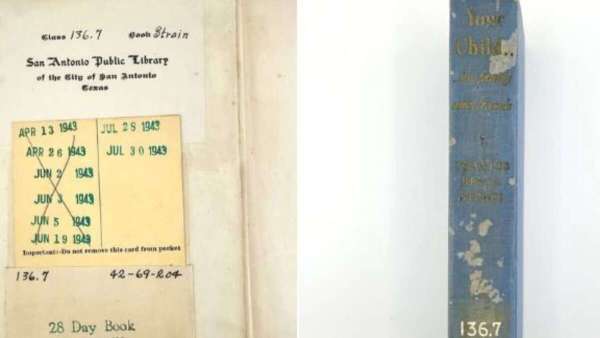 Class 136.7 Book Strain
San Antonio Public Library
of the City of San Antonio
Texas
APR 13 1943
APR 26 1943
JUN 2 1943
JUN 3 1943
JUN 5 1943
JUN 19 1943
JUL 28 1943
JUL 30 1943
Important:-Do not remove this card from pocket
136.7 42-69-204
28 Day Book
Your
Child..
136.7